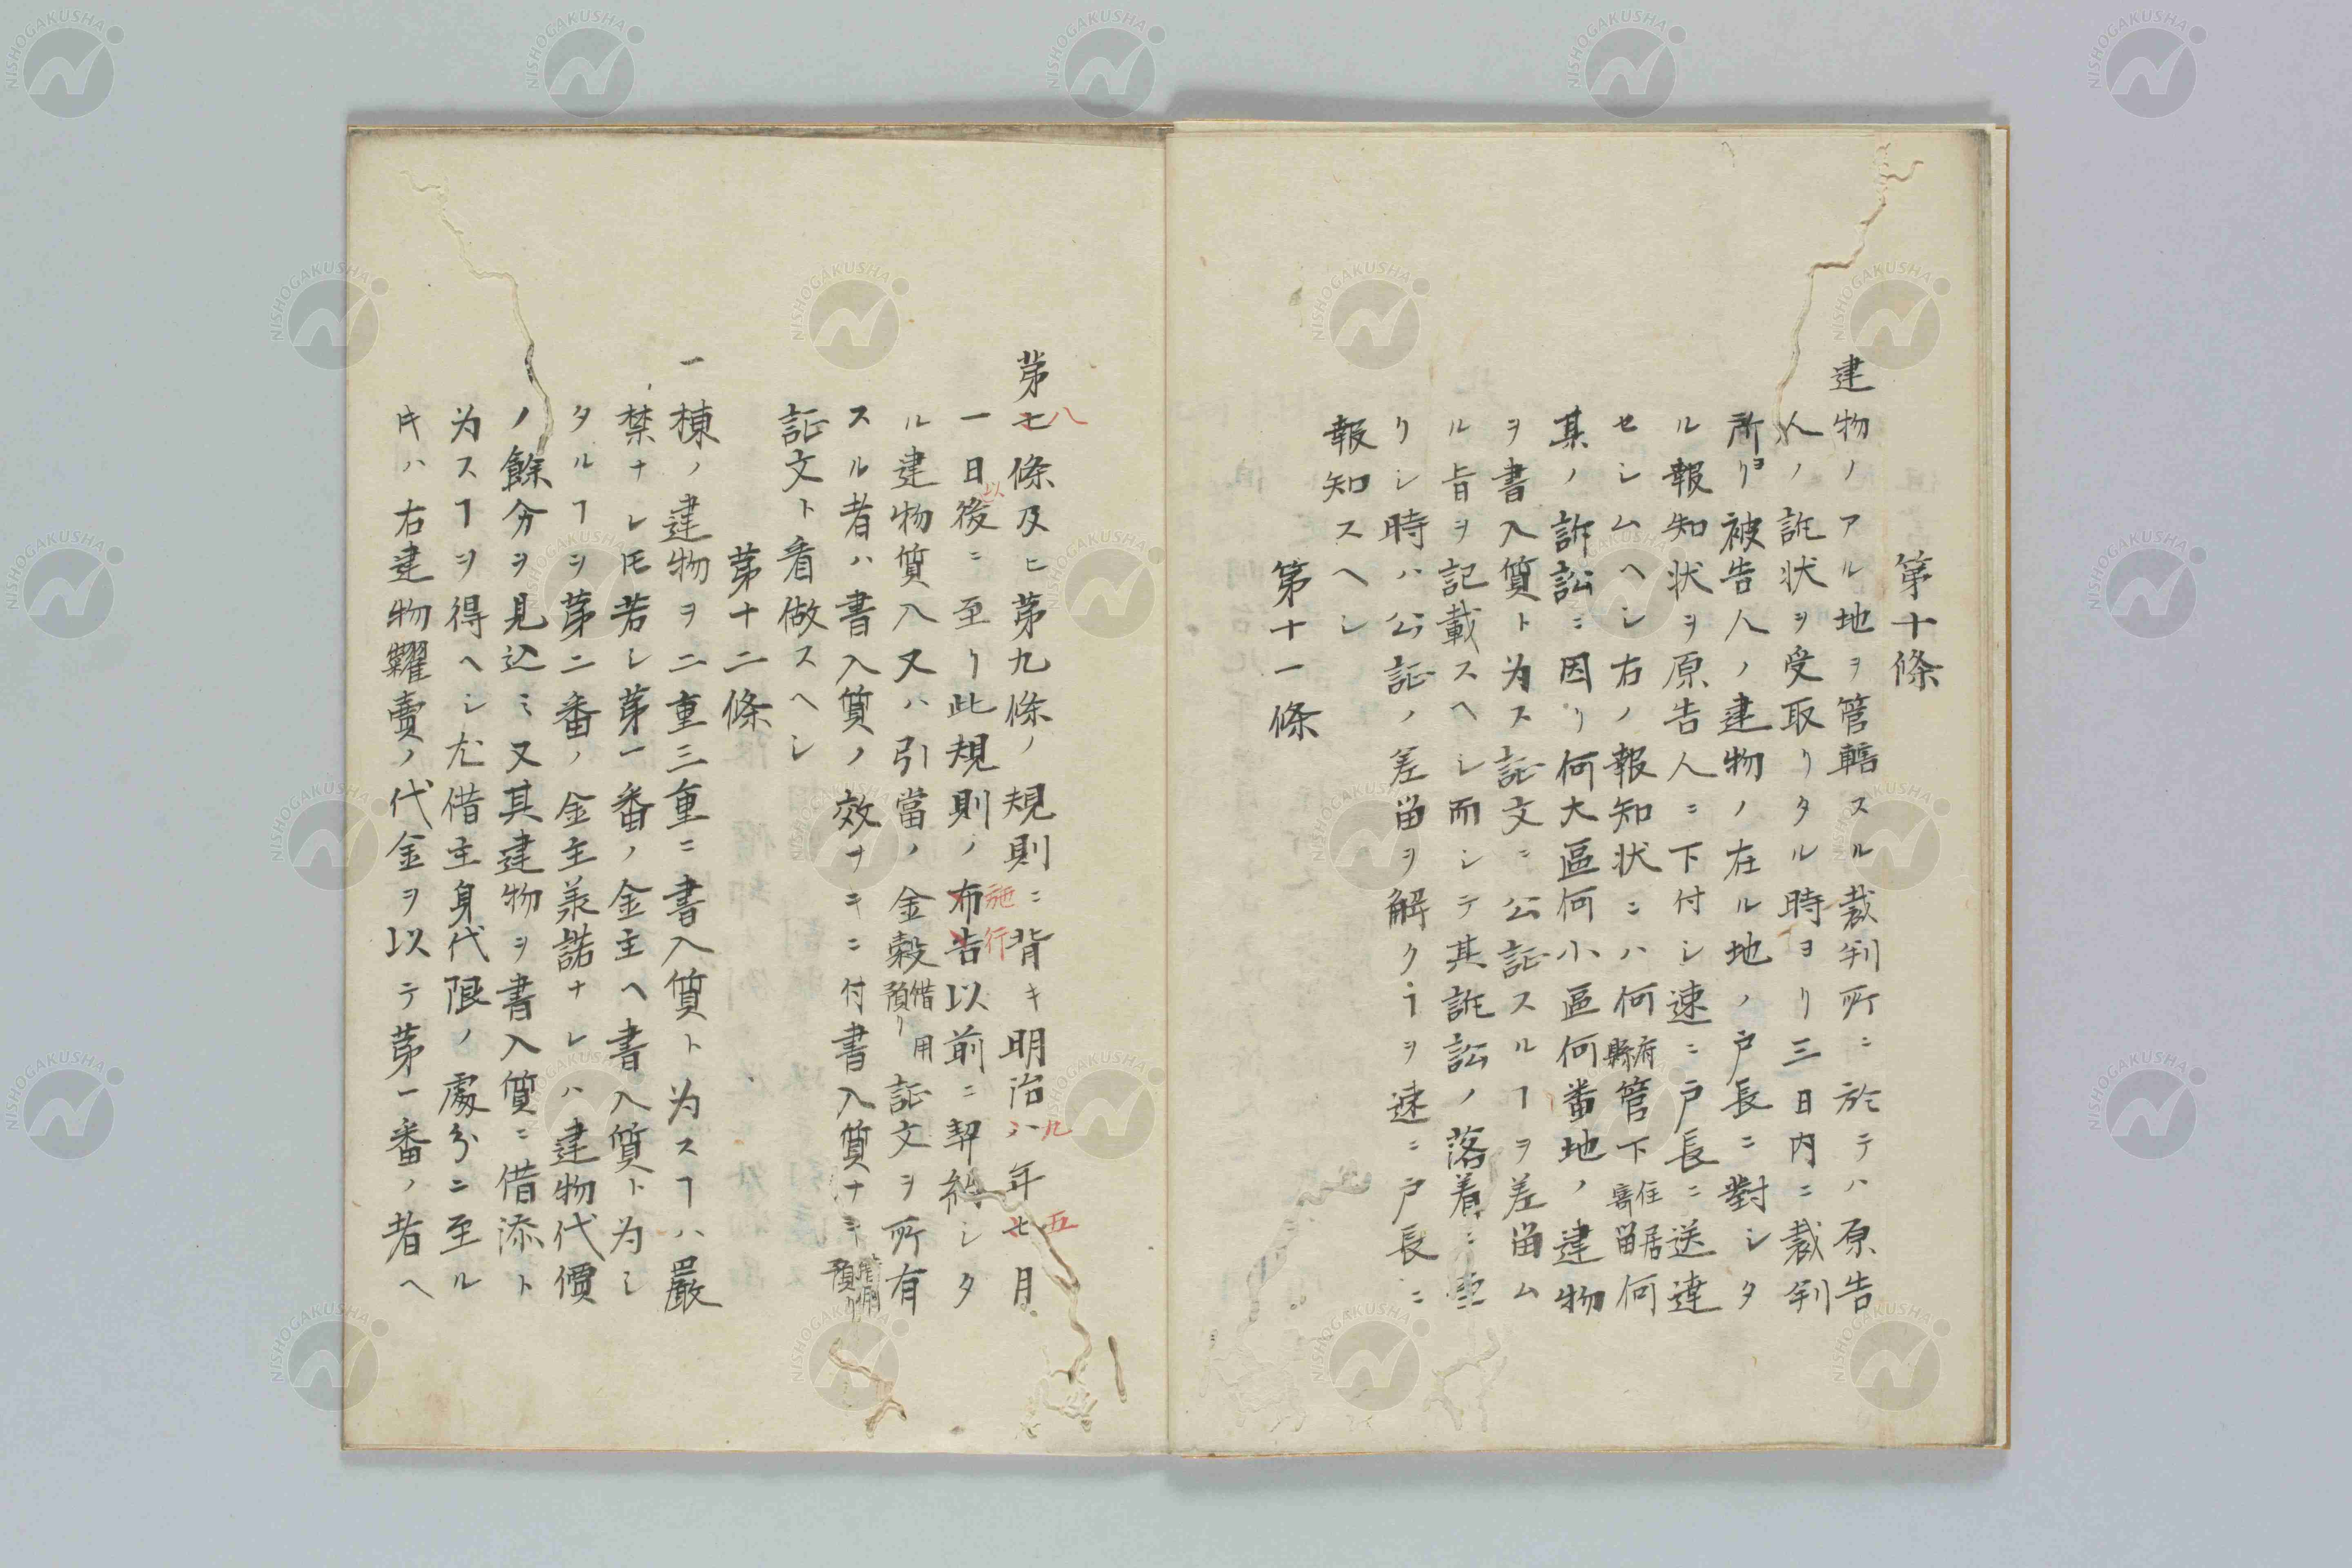 第十條
建物ノアル地ヲ管轄スル裁判所ニ於テハ原告
人ノ訴状ヲ受取リタル時ヨリ三日内ニ裁判
所ヨリ被告人ノ建物ノ在ル地ノ戸長ニ對シタ
ル報知状ヲ原告人ニ下付シ速ニ戸長ニ送達
セシムヘシ右ノ報知状ニハ何府縣管下住居寄留何
某ノ訴訟ニ因リ何大區何小區何番地ノ建物
ヲ書入質ト为ス証文ニ公証スルヿヲ差留ム
ル旨ヲ記載スヘシ而シテ其訴訟ノ落着ニ
リシ時ハ公証ノ差留ヲ解クヿヲ速ニ戸長ニ
報知スヘシ
第十一條
第七條及ヒ第九條ノ規則ニ背キ明治八年七月
八
九
五
一日後ニ至リ此規則ノ布告以前ニ契約シタ
以
施行
ル建物質入又ハ引當ノ金穀借用預リ証文ヲ所有
スル者ハ書入質ノ效ナキニ付書入質ナキ借用預リ
証文ト看做スヘシ
第十二條
一棟ノ建物ヲ二重三重ニ書入質ト为スヿハ嚴
禁ナレ𪜈若シ第一番ノ金主ヘ書入質ト为シ
タルヿヲ第二番ノ金主羕諾ナレハ建物代價
ノ餘分ヲ見込ミ又其建物ヲ書入質ニ借添ト
为スヿヲ得ヘシ尤借主身代限ノ處分ニ至ル
キハ右建物糶賣ノ代金ヲ以テ第一番ノ者ヘ
NISHOGAKUSHA